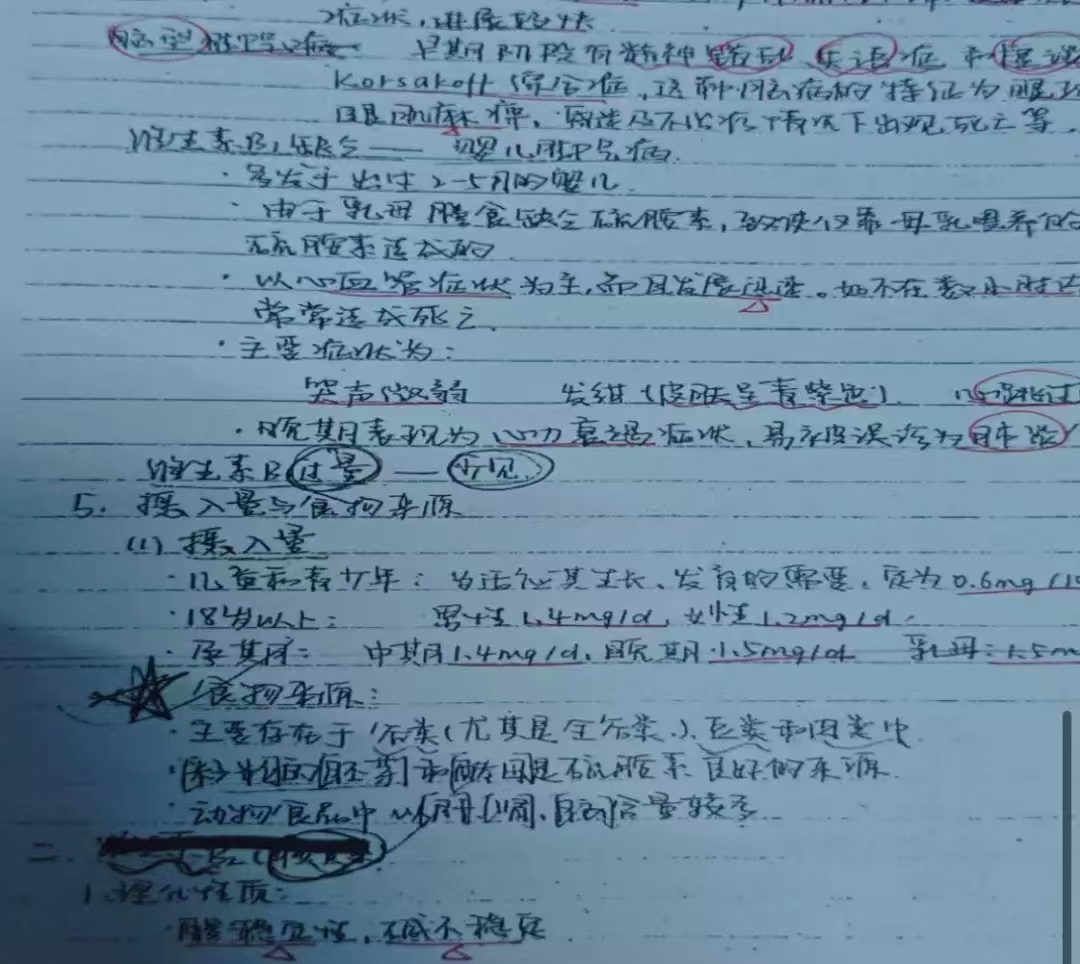 症状,进展较快
脑型脚气病 早期阶段有精神错乱 失语症 和
Korsakoff 综合症,这种脑病的特征为眼球
眼肌麻痹,
维生素B₁缺乏 —— 婴儿脚气病.
· 多发于出生2-5月的婴儿.
· 由于乳母膳食缺乏硫胺素,致使仅靠母乳喂养的
硫胺素造成的
· 以心血管症状为主,而且发展迅速。如不在数小时内
常常造成死亡.
· 主要症状为:
哭声微弱 发绀(皮肤呈青紫色). 心跳过
· 晚期表现为心力衰竭症状,易被误诊为
维生素B₁过量 —— 少见.
5. 摄入量与食物来源
(1) 摄入量
· 儿童和青少年: 为适应其生长、发育的需要,定为0.6mg/
· 18岁以上: 男性1.4mg/d,女性1.2mg/d.
· 孕期: 中期1.4mg/d,晚期1.5mg/d 乳母:1.5m
食物来源:
· 主要存在于谷类(尤其是全谷类)、豆类和肉类中.
是硫胺素良好的来源.
· 动物食品中 含量较多
二. B₂
1.理化性质:
· 酸稳定性,碱不稳定